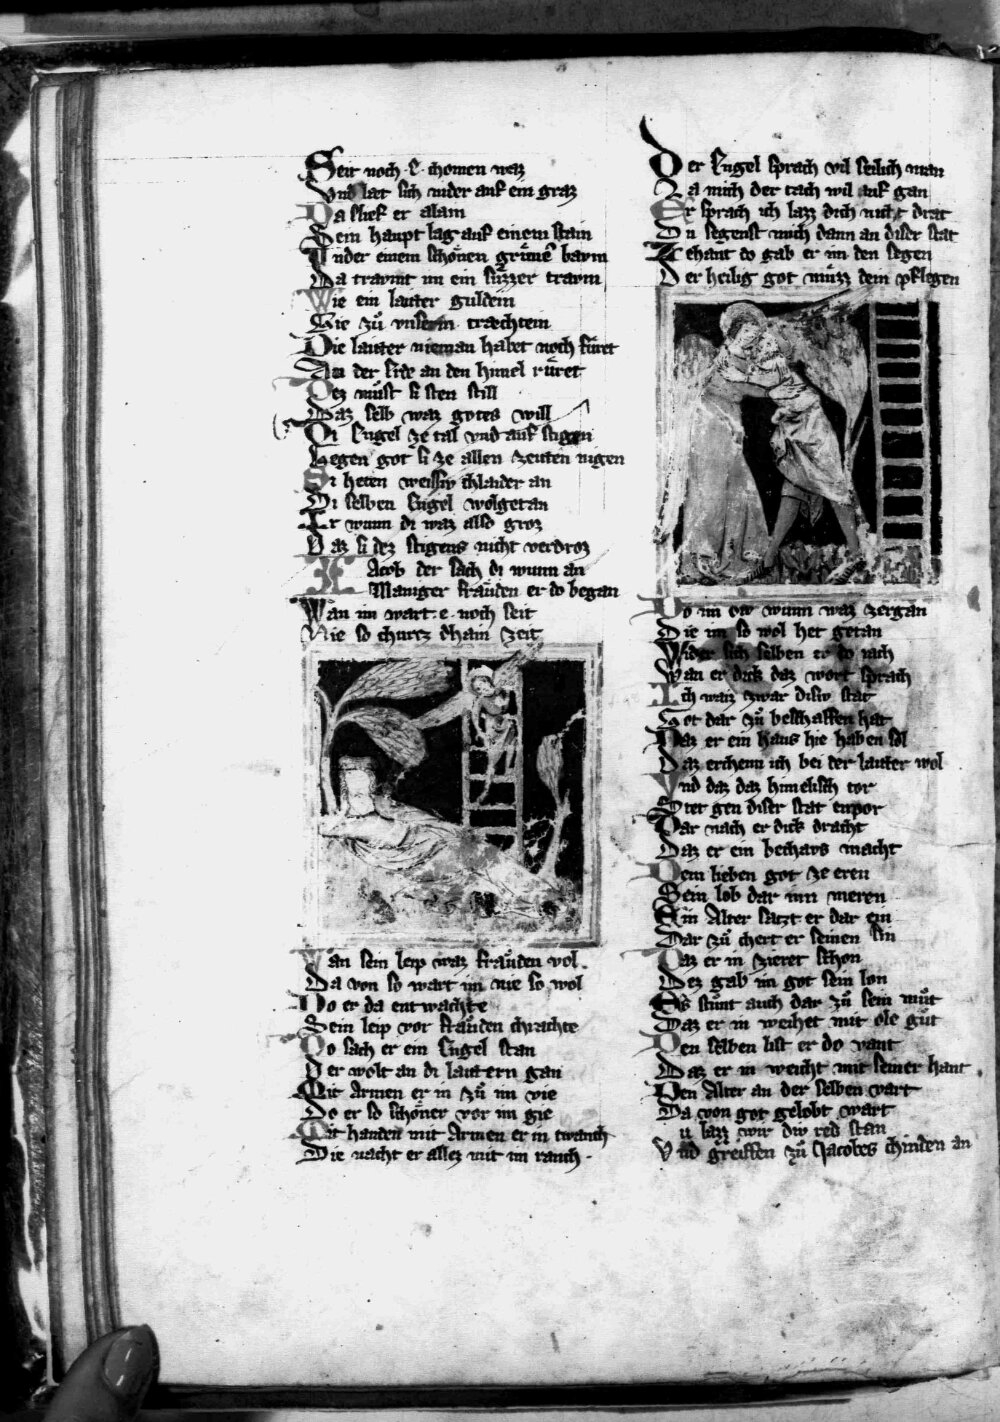 Seit noch e chomen waz
Vnd laet sich nider auf ein graz
Da slief er alain
Sein haupt lag auf einem stain
Vnder einem schönen grünē bavm
Da travmt im ein süzzer travm
Wie ein laiter guldein
Gie zů vnserm træchtein
Die laiter nieman habet noch füret
An der side an den himel rüret
Dez müst si sten still
Daz selb waz gotes will
Di Engel ze tal vnd auf stigen
Gegen got si ze allen zeiten nigen
Si heten weissiv chlaider an
Di selben Engel wolgetan
Ir wunn di waz also groz
Daz si dez stigens nicht verdroz
Jacob der sach di wunn an
Maniger fräuden er do began
Wan im wart e noch seit
Nie so churtz dhain zeit
Wan sein leip waz fräuden vol
Da von so wart im nie so wol
Do er da entwachte
Sein leip vor fräuden chrachte
Do sach er ein Engel stan
Der wolt an di laitern gan
Mit Armen er in zů im vie
Do er so schöner vor im gie
Mit handen mit Armen er in twanch
Die nacht er allez mit im ranch
Der Engel sprach vil seilich man
La mich der tach wil auf gan
Er sprach ich lazz dich nicht drat
Du segenst mich dann an diser stat
Zehant do gab er im den segen
Der heilig got müzz dem pflegen
Do im div wunn waz zergan
Die im so wol het getan
Wider sich selben er do iach
Wan er dick daz wort sprach
Ich waiz zwar disiv stat
Got dar zů beschaffen hat
Daz er ein haus hie haben sol
Daz erchenn ich bei der laiter wol
Vnd daz daz himelisch tor
Stet gen diser stat enpor
Dar nach er dick dracht
Daz er ein bethavs macht
Dem lieben got ze eren
Sein lob dar inn meren
Ein Alter satzt er dar ein
Dar zů chert er seinen sin
Daz er in zieret schon
Dez gab im got sein lon
Es stůnt auch dar zů sein můt
Daz er in weihet mit ole gůt
Den selben list er do vant
Daz er in weicht mit seiner hant
Den Alter an der selben vart
Da von got gelobt wart
u lazz wir div red stan
Vnd greiffen zů Jacobes chinden an